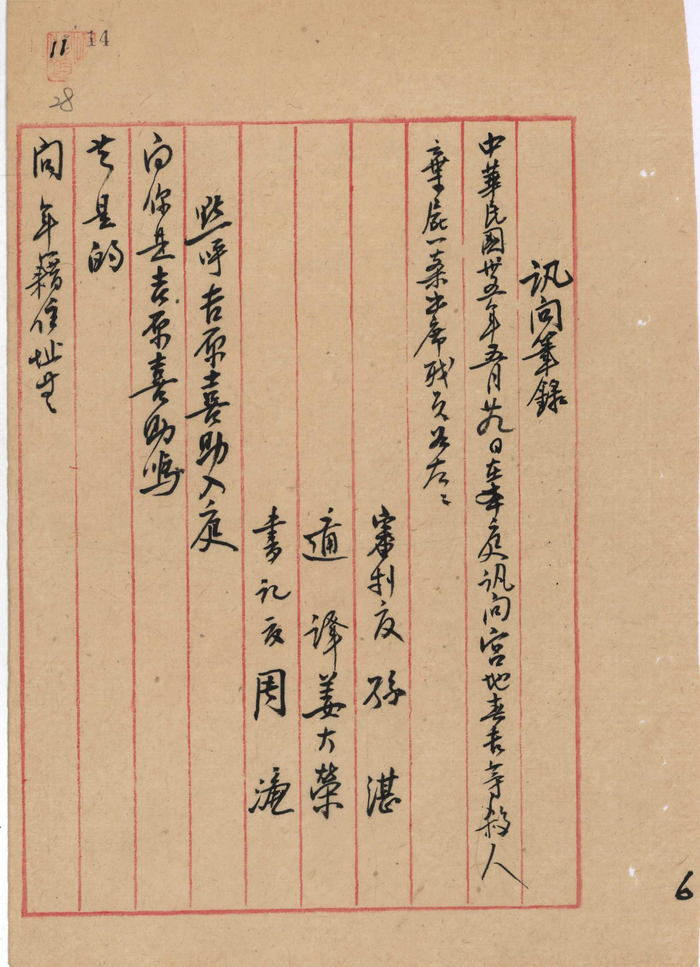 11
14
28
訊問筆錄
中華民國卅五年五月廿九日在本庭訊問宮地春吉等殺人
棄屍一案出席職員如左：
審判官 孫 湛
通 譯 姜大榮
書記官 周 濂
點呼吉原喜助入庭
問你是吉原喜助嗎
答是的
問 年籍住址等
6